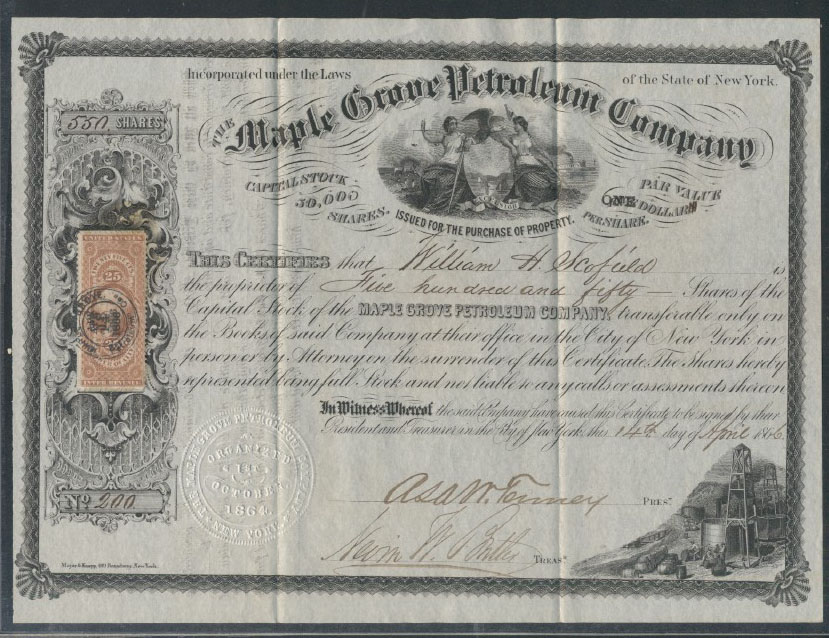 Incorporated under the Laws of the State of New York.
550 SHARES
THE Maple Grove Petroleum Company
CAPITAL STOCK 50,000 SHARES.
EXCELSIOR
PAR VALUE ONE DOLLAR PER SHARE.
ISSUED FOR THE PURCHASE OF PROPERTY.
This Certifies that William H. Scofield is
the proprietor of Five hundred and fifty — Shares of the
Capital Stock of the MAPLE GROVE PETROLEUM COMPANY, transferable only on
the Books of said Company at their office in the City of New York in
person or by Attorney on the surrender of this Certificate. The Shares hereby
represented being full Stock and not liable to any calls or assessments thereon
In Witness Whereof the said Company have caused this Certificate to be signed by their
President and Treasurer in the City of New York, this 14th day of April 1866
25
MAPLE GROVE PETROLEUM
ORGANIZED
1ST
OCTOBER,
1864
NEW YORK
Asa W. Tenney PRES.t
TREAS.r
No 200
Broadway, New York.